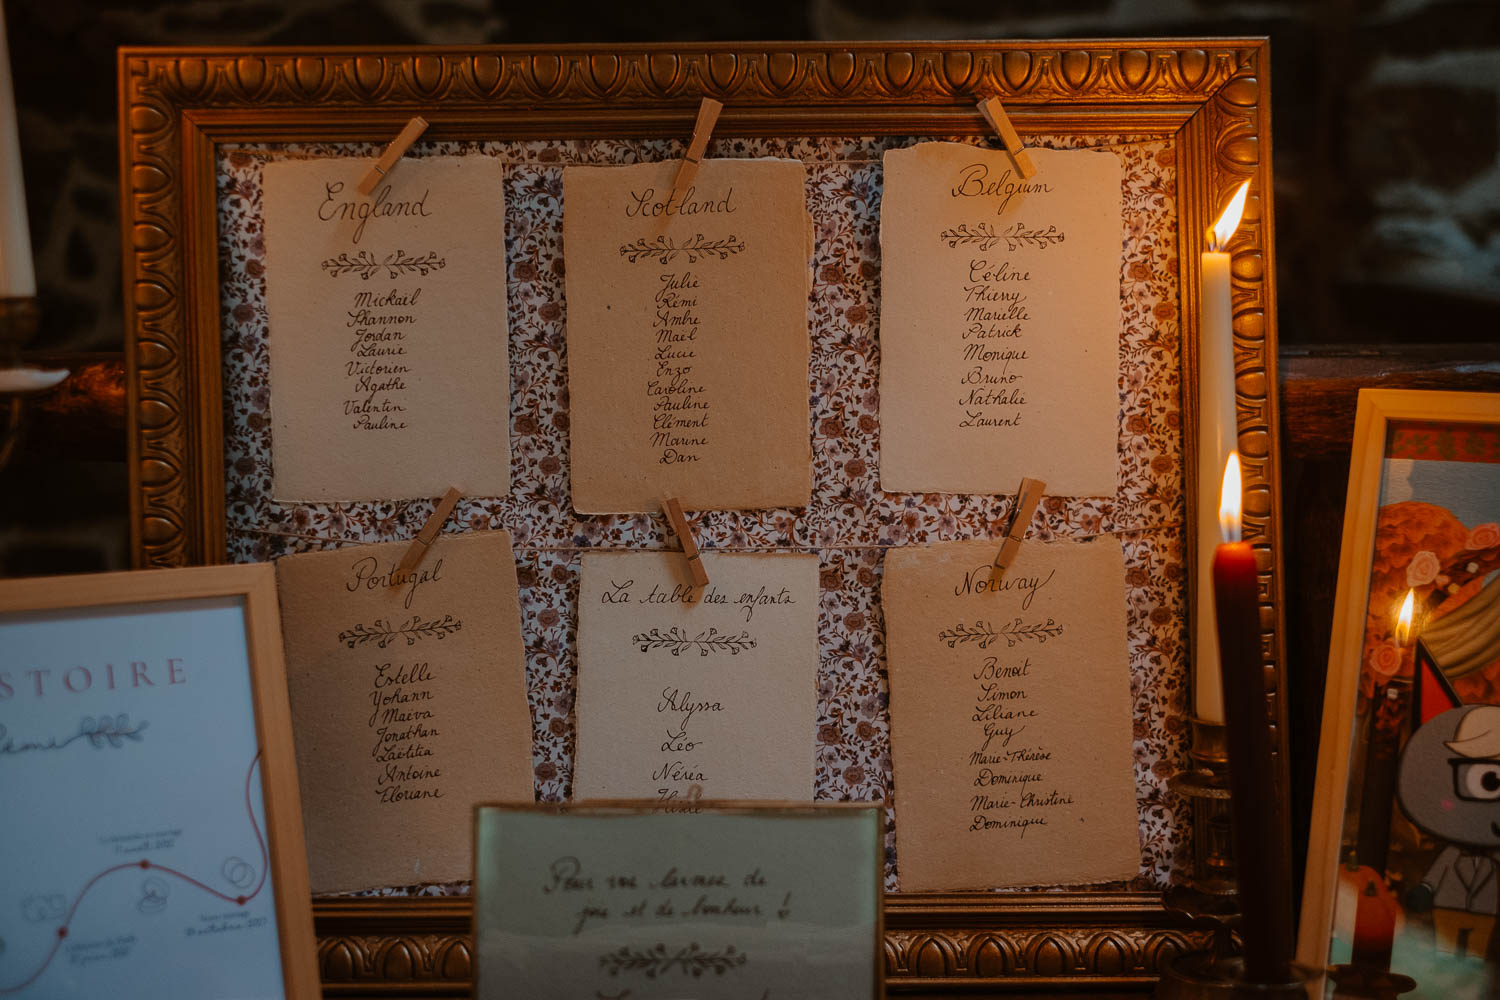 England
Mickaël
Shannon
Jordan
Laurie
Victorien
Agathe
Valentin
Pauline
Scotland
Julie
Rémi
Ambre
Maël
Lucie
Enzo
Caroline
Pauline
Clément
Marine
Dan
Belgium
Céline
Thierry
Marielle
Patrick
Monique
Bruno
Nathalie
Laurent
Portugal
Estelle
Yohann
Maëva
Jonathan
Laëtitia
Antoine
Floriane
La table des enfants
Alyssa
Léo
Néréa
Norway
Benoit
Simon
Liliane
Guy
Marie-Thérèse
Dominique
Marie-Christine
Dominique
STOIRE
Pour vos larmes de
joie et de bonheur !